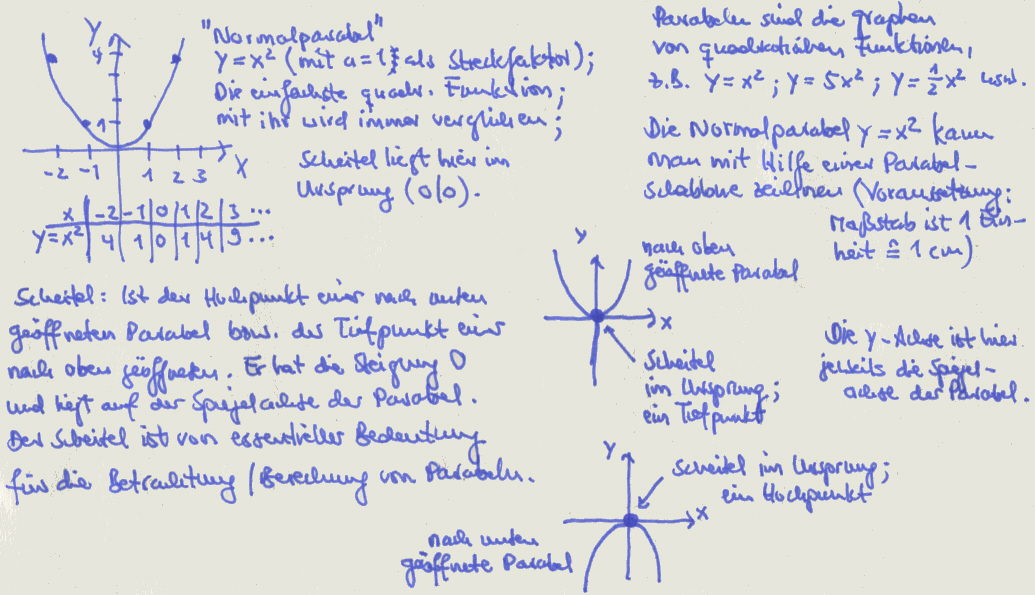 "Normalparabel"
y = x² (mit a = 1 als Streckfaktor);
Die einfachste quadr. Funktion;
mit ihr wird immer verglichen;
Scheitel liegt hier im
Ursprung (0|0).
y
4
1
-2 -1 1 2 3 x
x | -2 | -1 | 0 | 1 | 2 | 3 ...
y = x² | 4 | 1 | 0 | 1 | 4 | 9 ...
Parabeln sind die Graphen
von quadratischen Funktionen,
z.B. y = x² ; y = 5x² ; y = ½x² usw.
Die Normalparabel y = x² kann
man mit Hilfe einer Parabel-
schablone zeichnen (Voraussetzung:
Maßstab ist 1 Ein-
heit ≙ 1 cm)
Scheitel: Ist der Hochpunkt einer nach unten
geöffneten Parabel bzw. der Tiefpunkt einer
nach oben geöffneten. Er hat die Steigung 0
und liegt auf der Spiegelachse der Parabel.
Der Scheitel ist von essentieller Bedeutung
für die Betrachtung / Berechnung von Parabeln.
y
nach oben
geöffnete Parabel
x
Scheitel
im Ursprung;
ein Tiefpunkt
Die y-Achse ist hier
jeweils die Spiegel-
achse der Parabel.
y
Scheitel im Ursprung;
ein Hochpunkt
x
nach unten
geöffnete Parabel